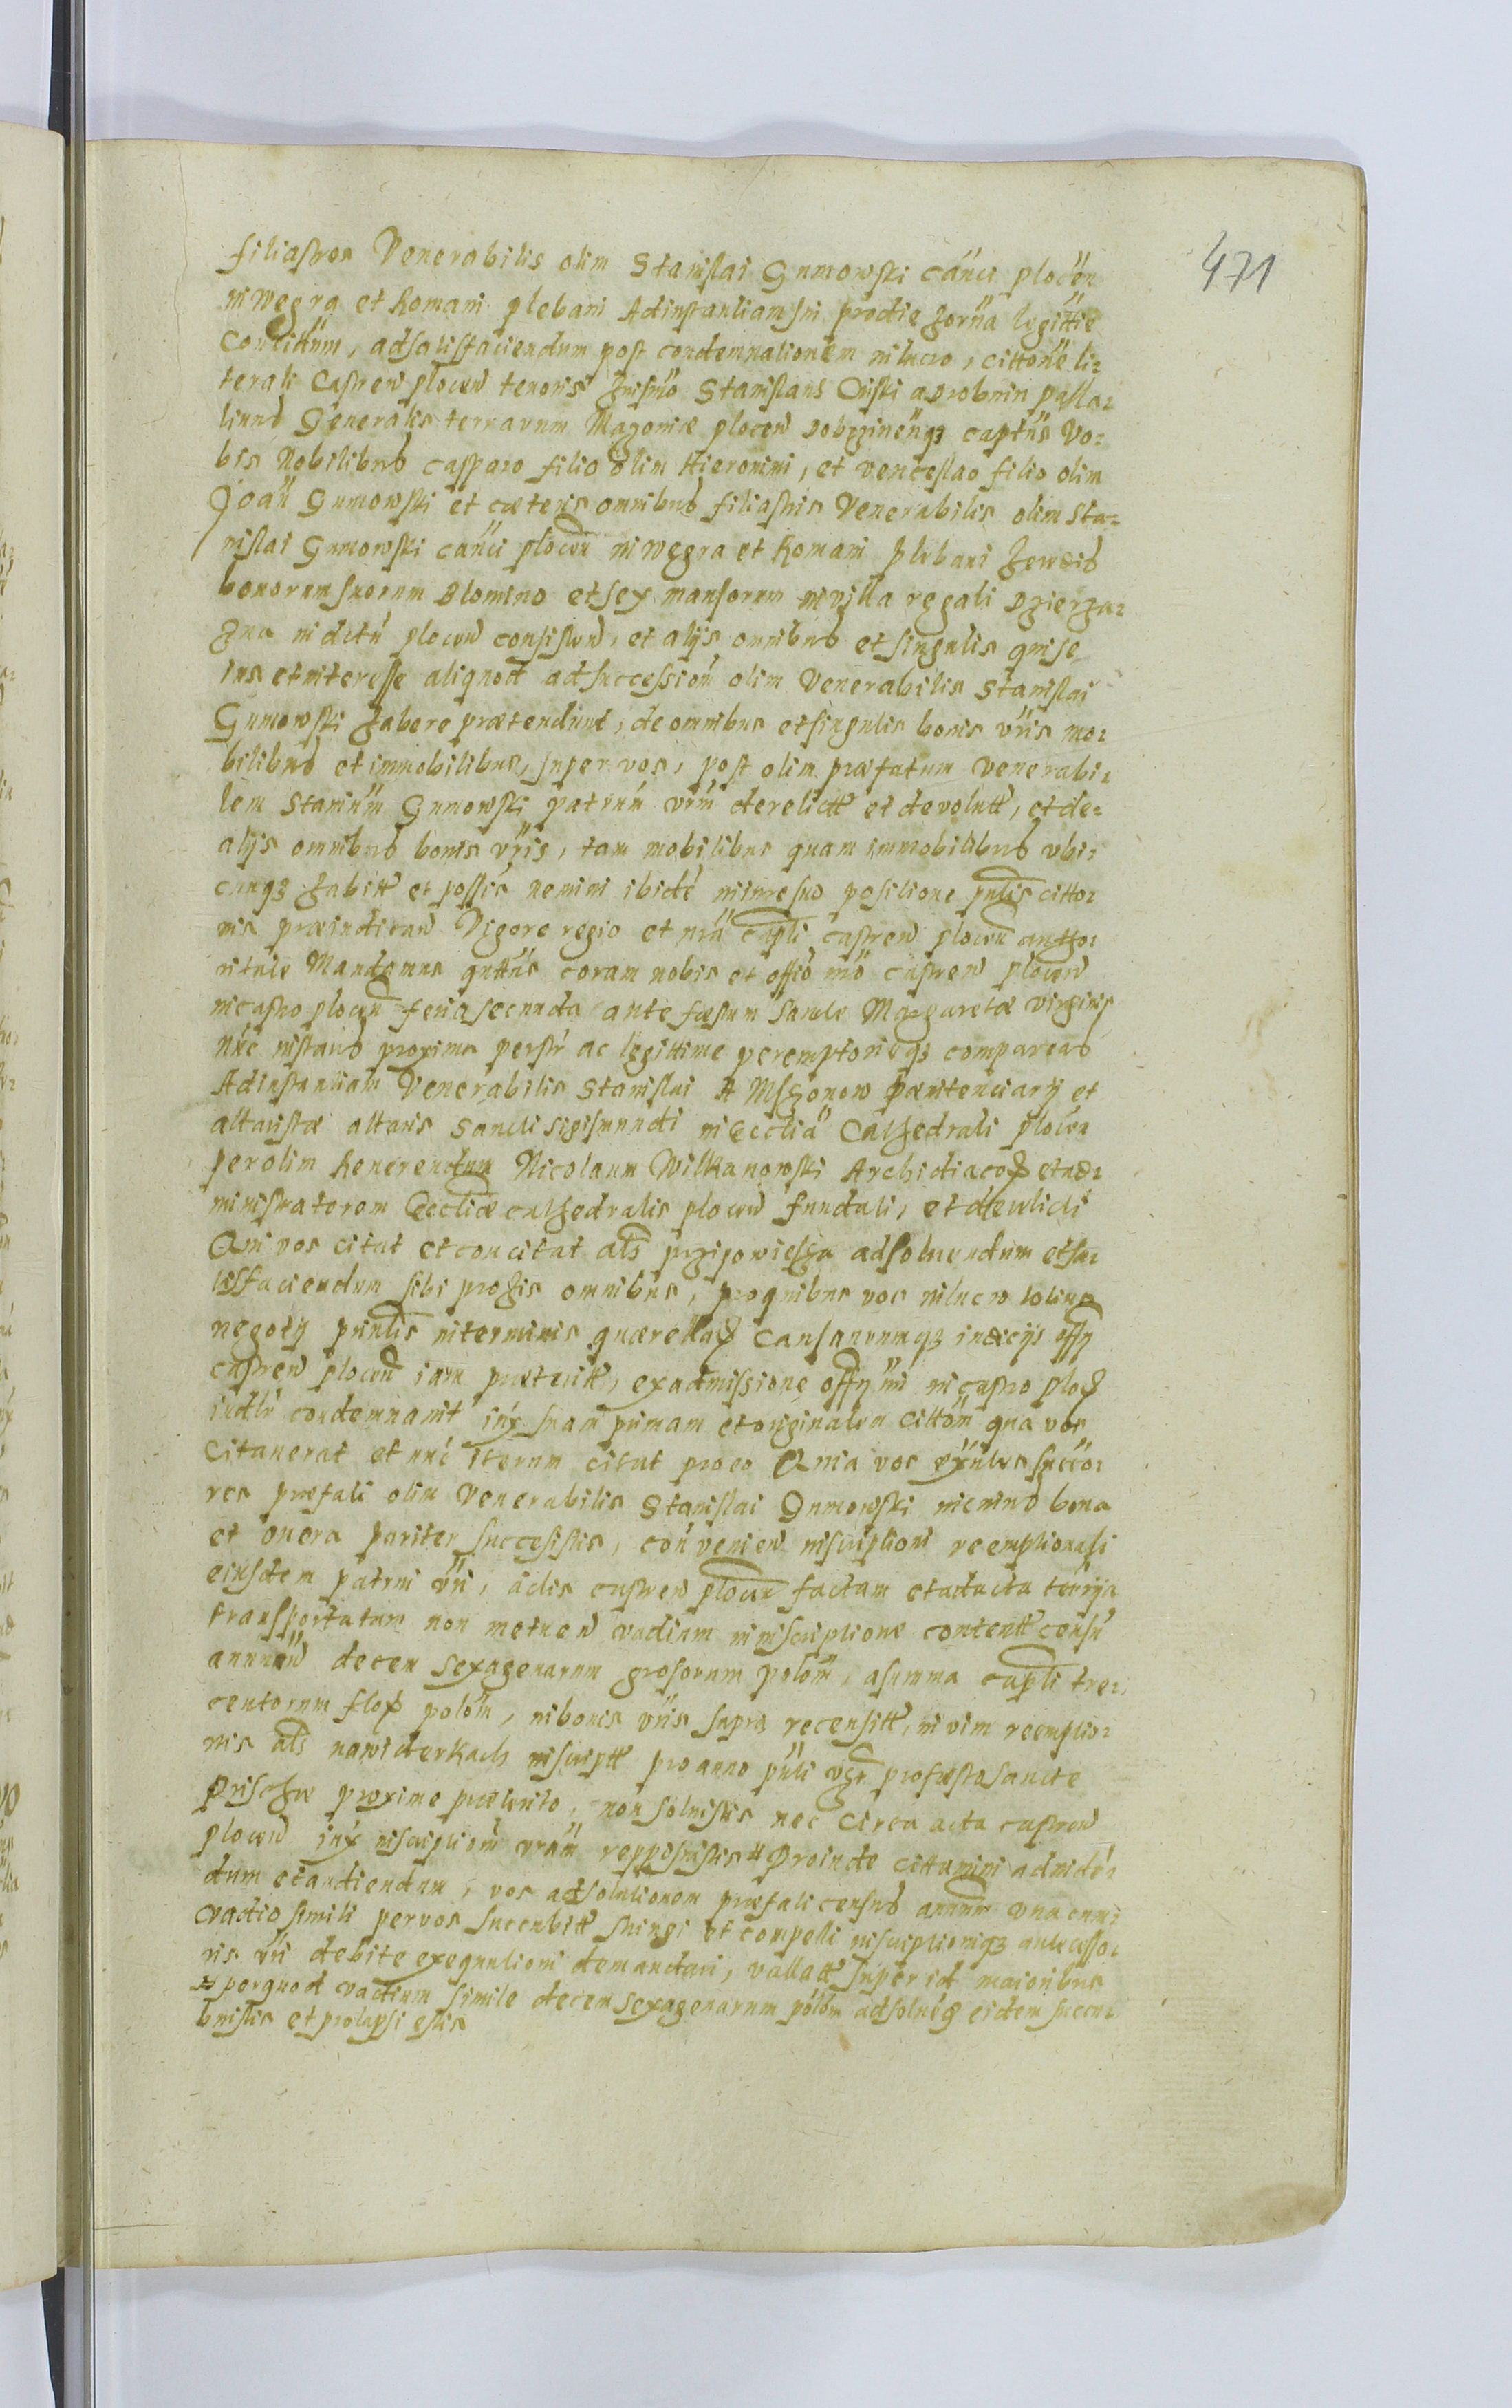 471
filiastros Venerabilis olim Stanislai Gumowski canci plocen
in Wegra et Romani plebani Ad instantiam sui prodie horna legittie
contitum, ad satisfaciendum post condemnationem in lucro, cittone li-
terali Castren plocen tenoris huiusmo Stanislaus a Drobnin palla-
tinus Generalis terrarum Mazoviæ plocen Dobrzinenqz captus Vo-
bis Nobilibus Casparo filio olim Hieronimi, et Venceslao filio olim
Joan Gumowski et cæteris omnibus filiastris Venerabilis olim Sta-
nislai Gumowski canci plocen in Wegra et Romani plebani heredib
bonorum suorum Blomino et sex mansorum in villa regali Dzierza-
zna in dictu plocen consisten, et alijs omnibus et singulis qui se
ius et interesse aliquod ad succession olim Venerabilis Stanislai
Gumowski habere prætendunt, de omnibus et singulis bonis vris mo-
bilibus et immobilibus, super vos, post olim præfatum Venerabi-
lem Stanium Gumowski patruu vrm derelictt et devolutt, et de-
alijs omnibus bonis vris, tam mobilibus quam immobilibus vbi-
cunqz habitt et possis nemini ibidé in iure suo positione pntis citto-
nis præiudican Vigore regio et nra capti castren plocen autho-
ritate Mandamus quttus coram nobis et offio nro castren plocen
in castro plocen feria secunda ante fæstum Sancte Margaretæ virginis
nuc instans proxima perstr ac legittime peremptorieqz compareas
Ad instantiam Venerabilis Stanislai A Mszonow Pænitenciarij et
altaristæ altaris Sancti Sigismundi in Ecclia Cathedrali plocen
per olim Reverendum Nicolaum Wilkanowski Archidiaco et ad-
ministratorem Eccliæ cathedralis plocen fundati, et derelicti
Qui vos citat et concitat als przipowiescza ad soluendum et sa-
tisfaciendum sibi pro his omnibus, pro quibus vos in lucro totius
negotij pntis in terminis quærella causarumqz indicijs offij
castren plocen iam præteritt, ex admissione offij nri in castro plo
iudtr condemnavit iux suam primam et originalem citton qua vos
citauerat et nuc iterum citat pro eo Quia vos succo-
res præfati olim Venerabilis Stanislai Gumowski in eius bona
et onera pariter successistis, con venien inscriptioni reemptionali
eiusdem patrui vri, actis castren plocen factam et ad acta terrija
transportatam non metuen vadium in inscriptione contentt censu
annuu decem sexagenarum grosorum polom, a summa capti tre-
centorum flo polom, in bonis vris supra recensitt, in vim reemptio-
nis als nawiderkach inscriptt pro anno pnti vgr pro fæsto sancte
Prischæ proxime præterito, non soluistis nec circa acta castren
plocen iux inscription vram repposuistis # Proinde cittamini ad viden-
dum et audiendum, vos ad solutionem præfati census annum vna cum
vadio simili per vos succubitt stringi et compelli inscriptionisqz antecesso-
ris vri debite exequutioni demandari, vallatt super id maioribus
# per quod vadium simile decem sexagenarum polom ad solu eidem succu-
buistis et prolapsi estis